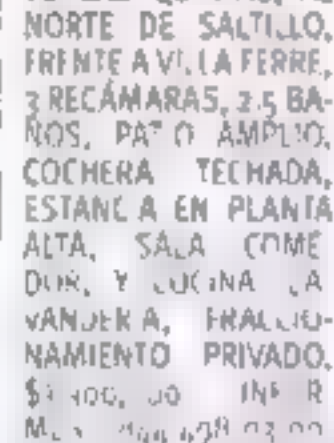 NORTE DE SALTILLO,
FRENTE A VILLA FERRE,
3 RECÁMARAS, 2.5 BA-
ÑOS, PATIO AMPLIO,
COCHERA TECHADA,
ESTANCIA EN PLANTA
ALTA, SALA COME
DOR, Y COCINA LA
VANDERIA, FRACCIO-
NAMIENTO PRIVADO,